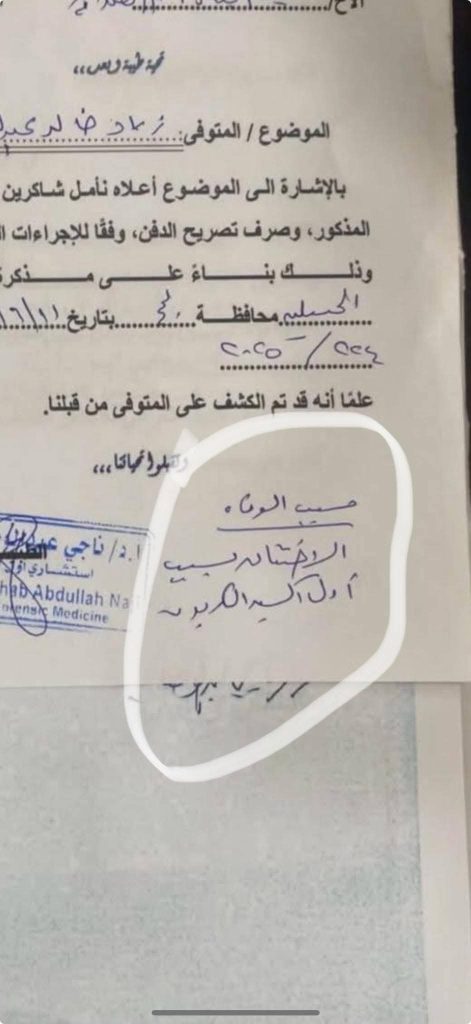 الأخ/
تحية طيبة وبعد ,,,
الموضوع / المتوفى: خالد
بالإشارة الى الموضوع أعلاه نأمل شاكرين
المذكور، وصرف تصريح الدفن، وفقًا للإجراءات ا
وذلك بناءً على مذكرة
محافظة بتاريخ ٦/١١
٢٢٤/ ٢٠٢٥
علمًا أنه قد تم الكشف على المتوفى من قبلنا.
وتقبلوا تحياتنا ,,,
سبب الوفاه
الاختناق بسبب
أول اكسيد الكربون
ا.د/ ناجي
استشاري أول
hab Abdullah Na
orensic Medicine